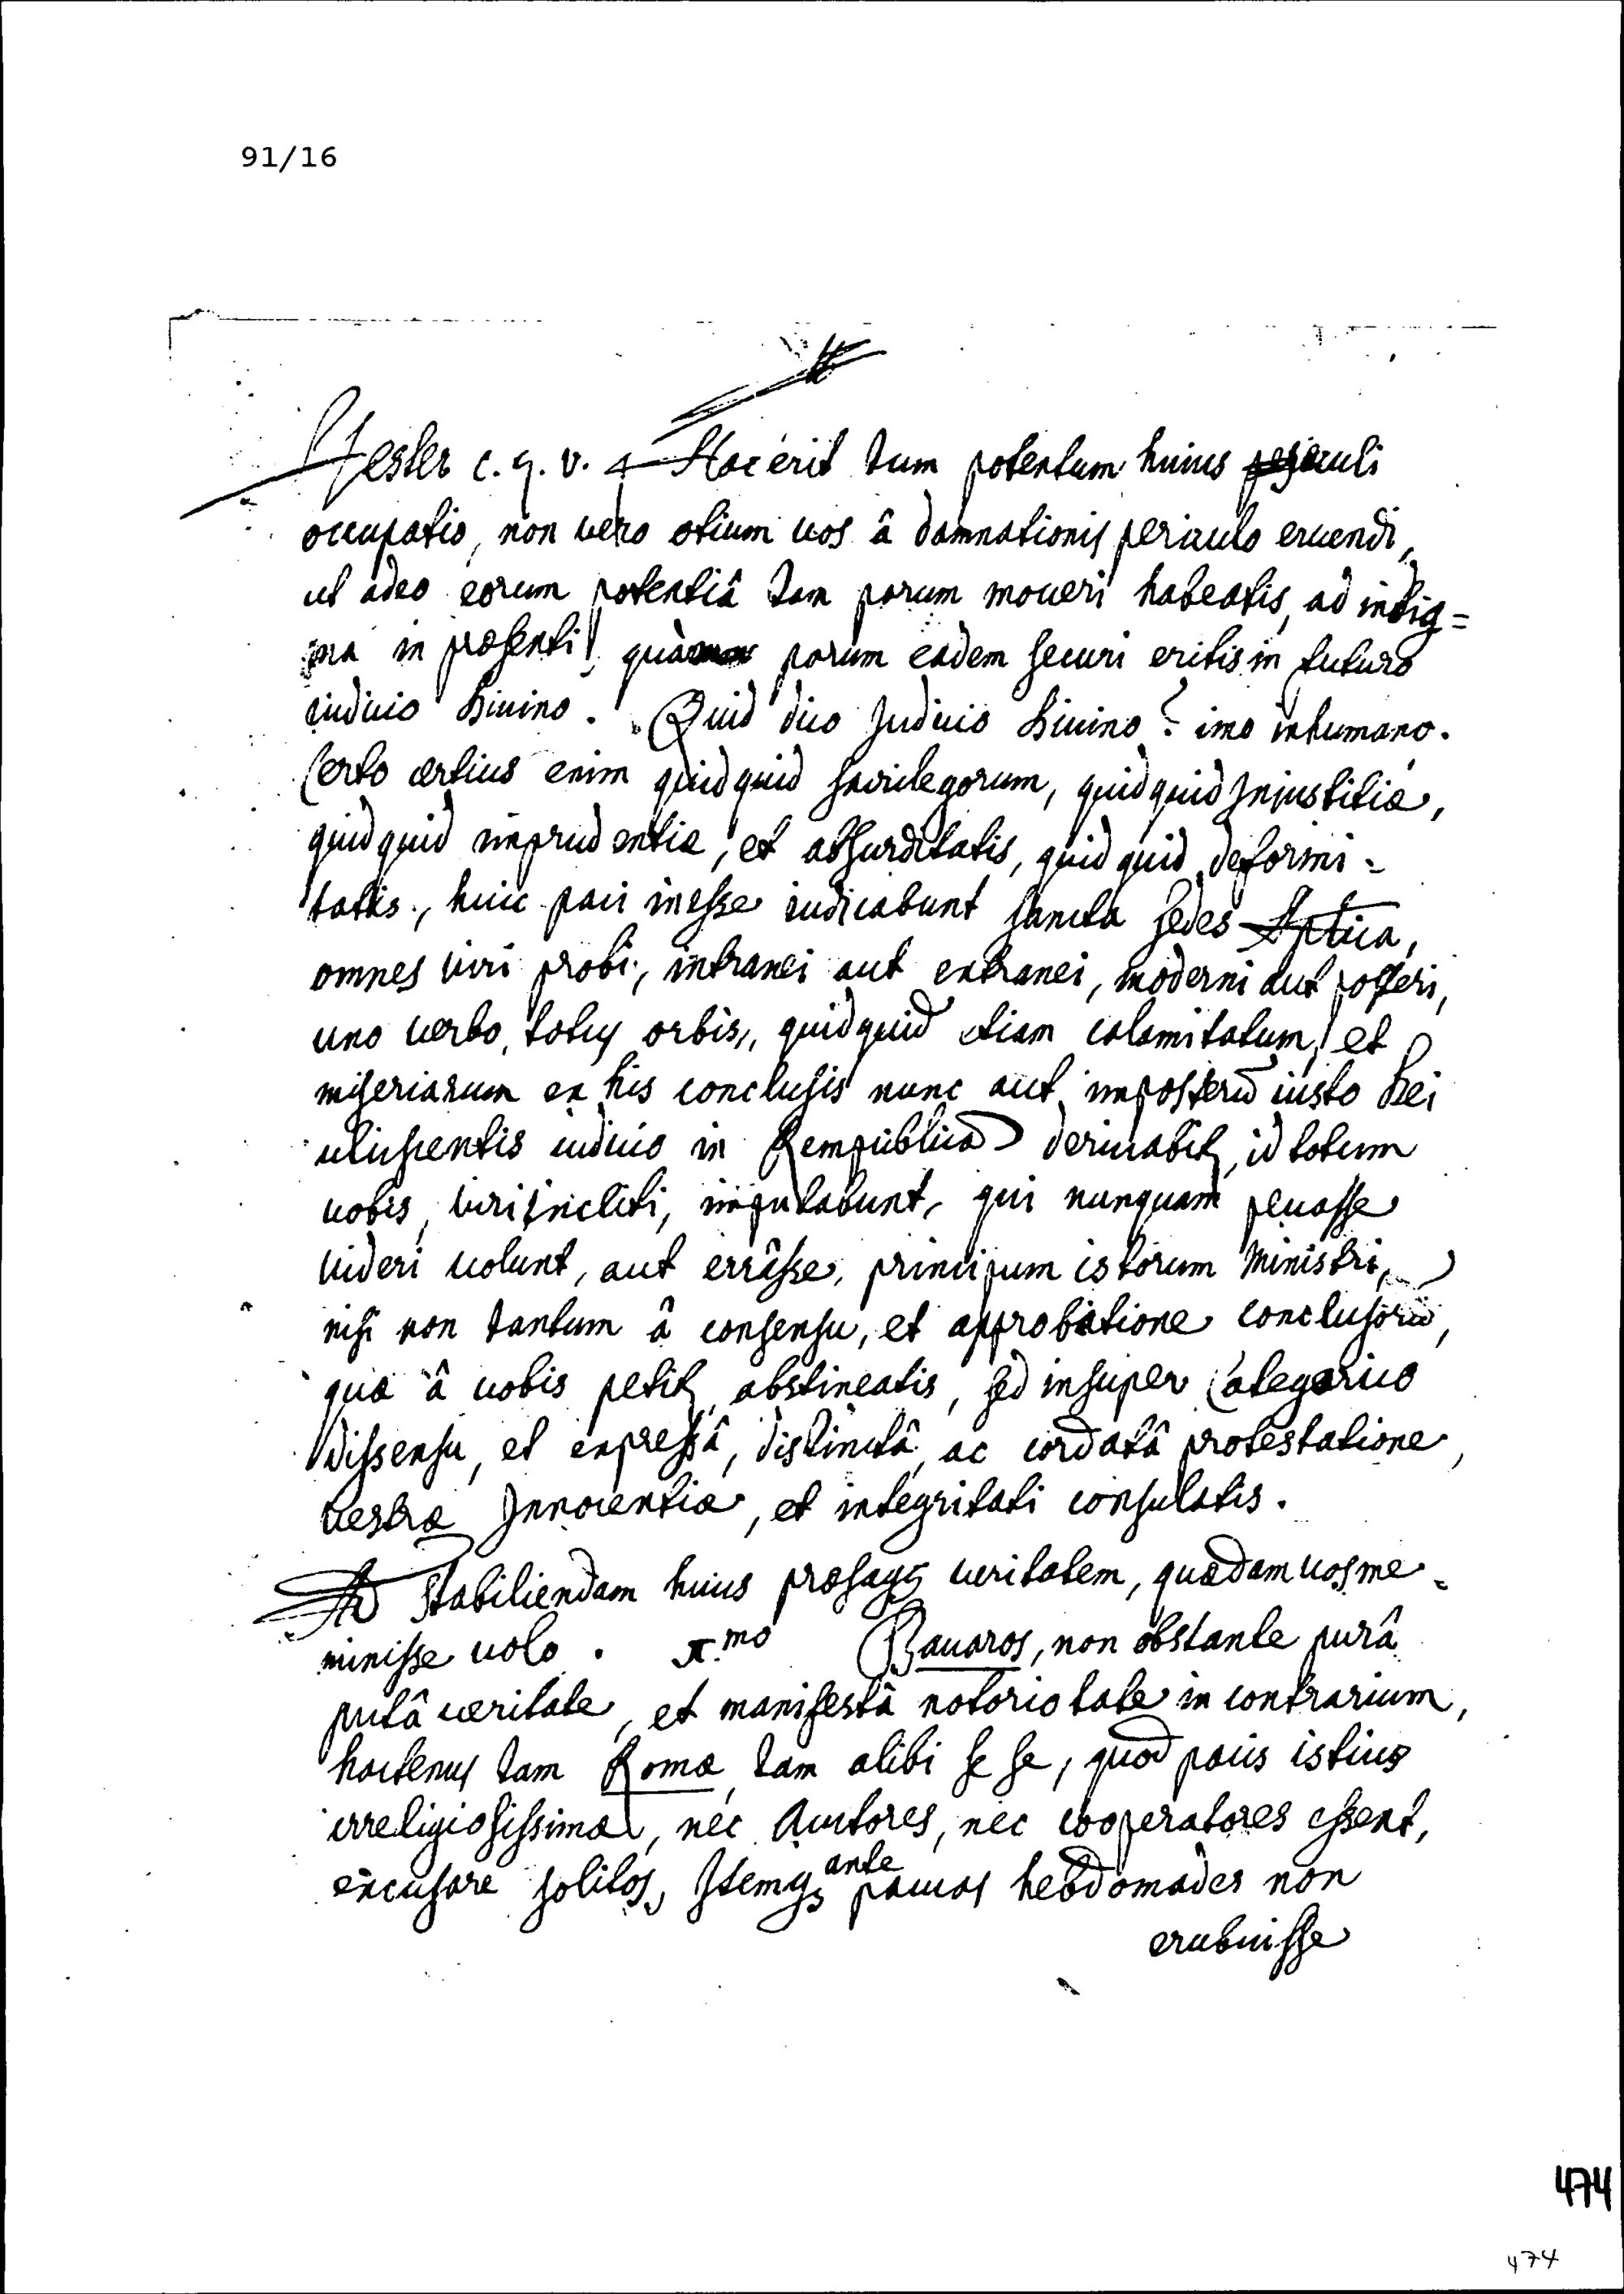 91/16
Hester c. 4. v. 4 Hoc erit tum potentum huius seculi
occupatio, non vero otium uos â damnationis periculo eruendi,
ut adeo eorum potentiâ tam parum moueri habeatis, ad indig=
na in præsenti, quàm parum eadem securi eritis in futuro
iudicio diuino. Quid dico Judicio diuino? imo inhumano.
Certo certius enim quidquid sacrilegorum, quidquid Injustitiæ,
quidquid imprudentiæ, et absurditatis, quidquid deformi=
tatis, huic paci inesse iudicabunt sancta sedes Aptica,
omnes viri probi, intranei aut extranei, moderni aut posteri,
uno verbo, totus orbis, quidquid etiam calamitatum, et
miseriarum ex his conclusis nunc aut imposterũ iusto Dei
ulciscentis iudicio in Rempublicã deriuabitʒ, id totum
uobis, viri incliti, imputabunt, qui nunquam peccasse
videri uolunt, aut errâsse, principum istorum Ministri,
nisi non tantum â consensu, et approbatione conclusorũ,
quæ â uobis petitʒ abstineatis, sed insuper Categorico
dissensu, et expressâ, distinctâ, ac cordatâ protestatione,
vestræ Innocentiæ, et integritati consulatis.
Ad stabiliendam huius præsagÿ ueritatem, quædam uos me=
minisse uolo. I.mo Bauaros, non obstante purâ
putâ veritate, et manifestâ notorietate in contrarium,
hactenus tam Romæ, tam alibi se se, quod pacis istius
irreligiosissimæ, nec Auctores, nec cooperatores essent,
excusare solitos, Itemqʒ ante paucas hebdomades non
erubuisse
474
474